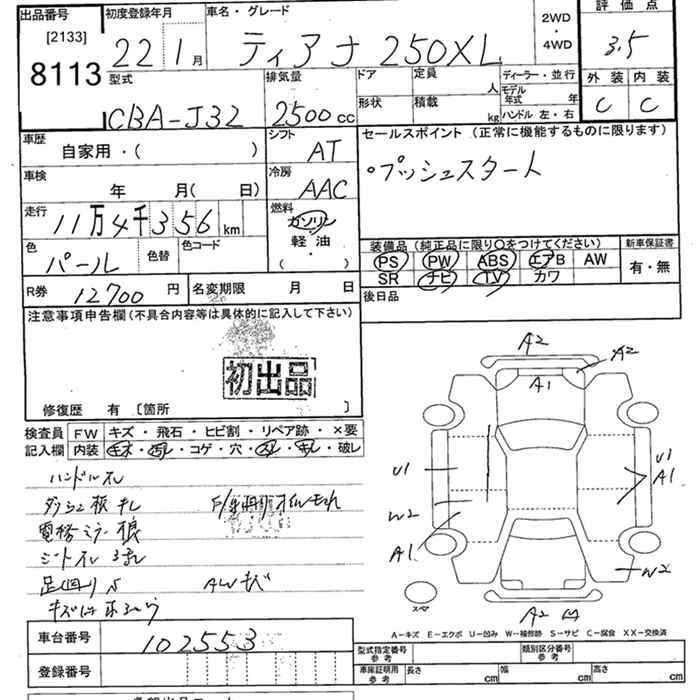 出品番号
[2133]
8113
初度登録年月
22 1月
車名・グレード
ティアナ 250XL
2WD
・
4WD
評価点
3.5
外装 内装
C C
型式
CBA-J32
排気量
2500cc
ドア
定員
人
形状
積載
kg
ディーラー・並行
モデル年式 年
ハンドル 左・右
車歴
自家用・( )
シフト
AT
セールスポイント (正常に機能するものに限ります)
・プッシュスタート
車検
年 月( 日)
冷房
AAC
走行
11万4千356km
燃料
ガソリン
軽・油
( ・ )
色
パール
色替
色コード
装備品 (純正品に限り〇をつけてください)
新車保証書
PS PW ABS エアB AW
有・無
SR ナビ TV カワ
R券 12700円
名変期限 月 日
後日品
注意事項申告欄(不具合内容等は具体的に記入して下さい)
初出品
修復歴 有 [箇所 ]
検査員
記入欄
FW キズ・飛石・ヒビ割・リペア跡・×要
内装 コゲ・穴・破レ
ハンドルスレ
電格ミラー
足回り
AWキズ
A2
A2
A1
U1
U1
A1
W2
A1
W2
スペア
A2
A-キズ E-エクボ U-凹み W-補修跡 S-サビ C-腐食 XX-交換済
車台番号 102553
登録番号
型式指定番号
参考
類別区分番号
参考
車庫証明用
参考
長さ cm
幅 cm
高さ cm